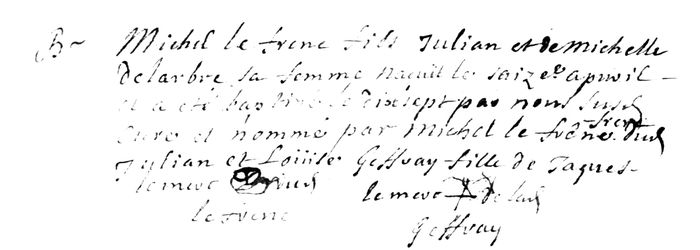 B~ Michel le frene fils Julian et de Michelle
delarbre sa femme naquit le saize apvril -
et a été baptisé le disept par nous susd
Curé et nommé par Michel le frêne
frere dud
Julian et Louise Geffray fille de Jaques -
le merc dud le merc de lad
le frene Geffray